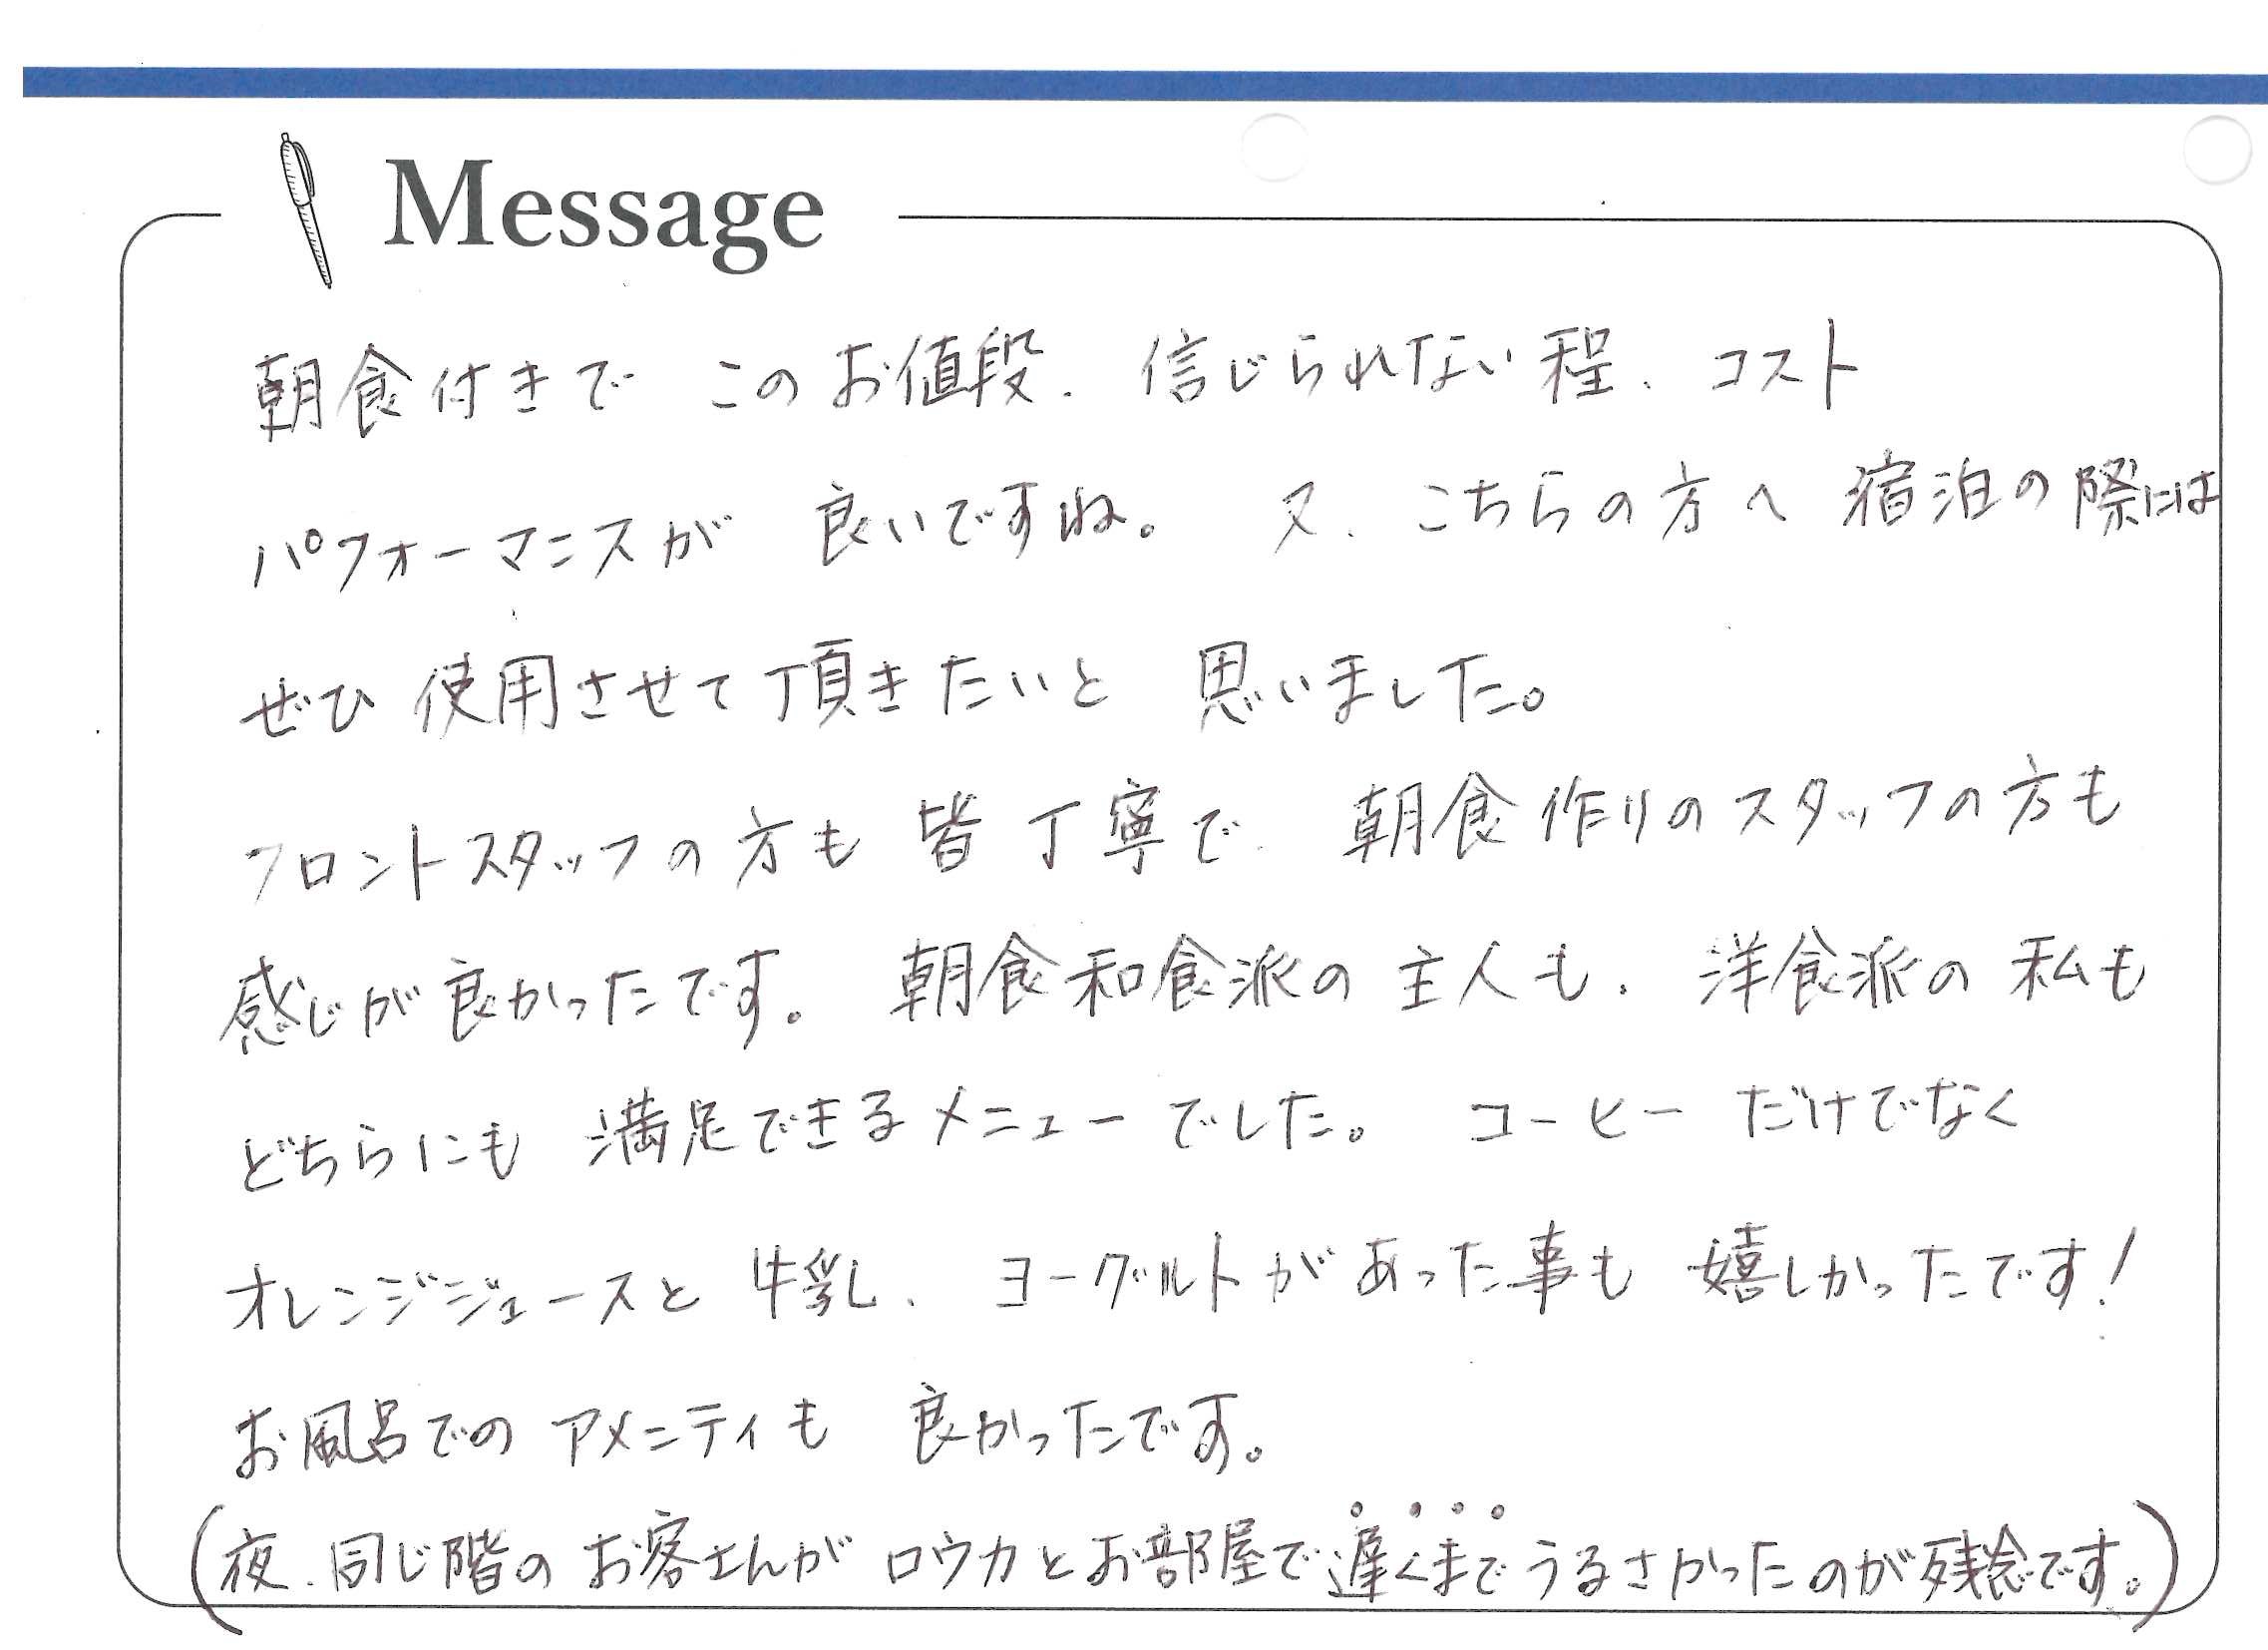 Message
朝食付きで このお値段、信じられない程、コスト
パフォーマンスが 良いですね。 又、こちらの方へ 宿泊の際には
ぜひ 使用させて頂きたいと 思いました。
フロントスタッフの方も 皆 丁寧で 朝食作りのスタッフの方も
感じが良かったです。 朝食和食派の主人も、洋食派の私も
どちらにも 満足できるメニューでした。 コーヒーだけでなく
オレンジジュースと 牛乳、ヨーグルトがあった事も 嬉しかったです!
お風呂でのアメニティも 良かったです。
(夜、同じ階のお客さんが ロウカとお部屋で遅くまでうるさかったのが残念です。)